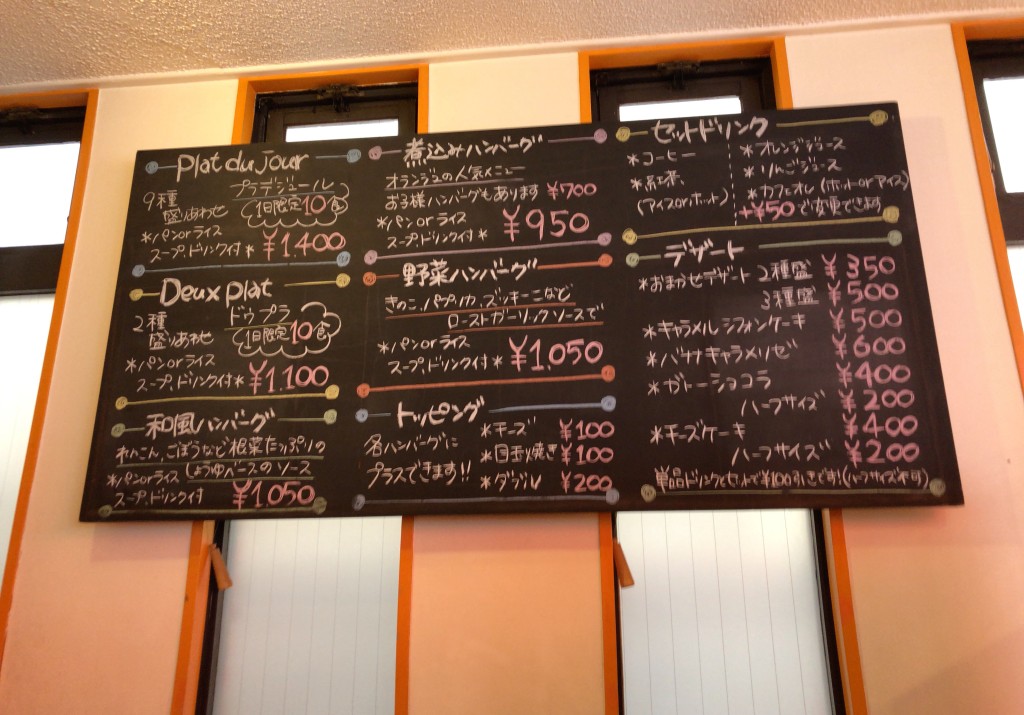 Plat du Jour
プラデジュール
9種
盛りあわせ
1日限定10食
*パンorライス
スープ、ドリンク付* ¥1.400
Deux plat
2種
ドゥプラ
盛りあわせ
1日限定10食
*パンorライス
スープ、ドリンク付* ¥1.100
和風ハンバーグ
れんこん、ごぼうなど根菜たっぷりの
しょうゆベースのソース
*パンorライス
スープ、ドリンク付 ¥1.050
煮込みハンバーグ
オランジュの人気メニュー
お子様ハンバーグもあります ¥700
*パンorライス
スープ、ドリンク付* ¥950
野菜ハンバーグ
きのこ、パプリカ、ズッキーニなど
ローストガーリックソースで
*パンorライス
スープ、ドリンク付* ¥1.050
トッピング
各ハンバーグに
プラスできます!!
*チーズ ¥100
*目玉焼き ¥100
*ダブル ¥200
セットドリンク
*コーヒー
*紅茶
(アイスorホット)
*オレンジジュース
*りんごジュース
*カフェオレ(ホットorアイス)
+¥50で変更できます
デザート
*おまかせデザート 2種盛 ¥350
3種盛 ¥500
*キャラメルシフォンケーキ ¥500
*バナナキャラメリゼ ¥600
*ガトーショコラ ¥400
ハーフサイズ ¥200
*チーズケーキ ¥400
ハーフサイズ ¥200
単品ドリンクとセットで¥100引きです!(ハーフサイズ不可)